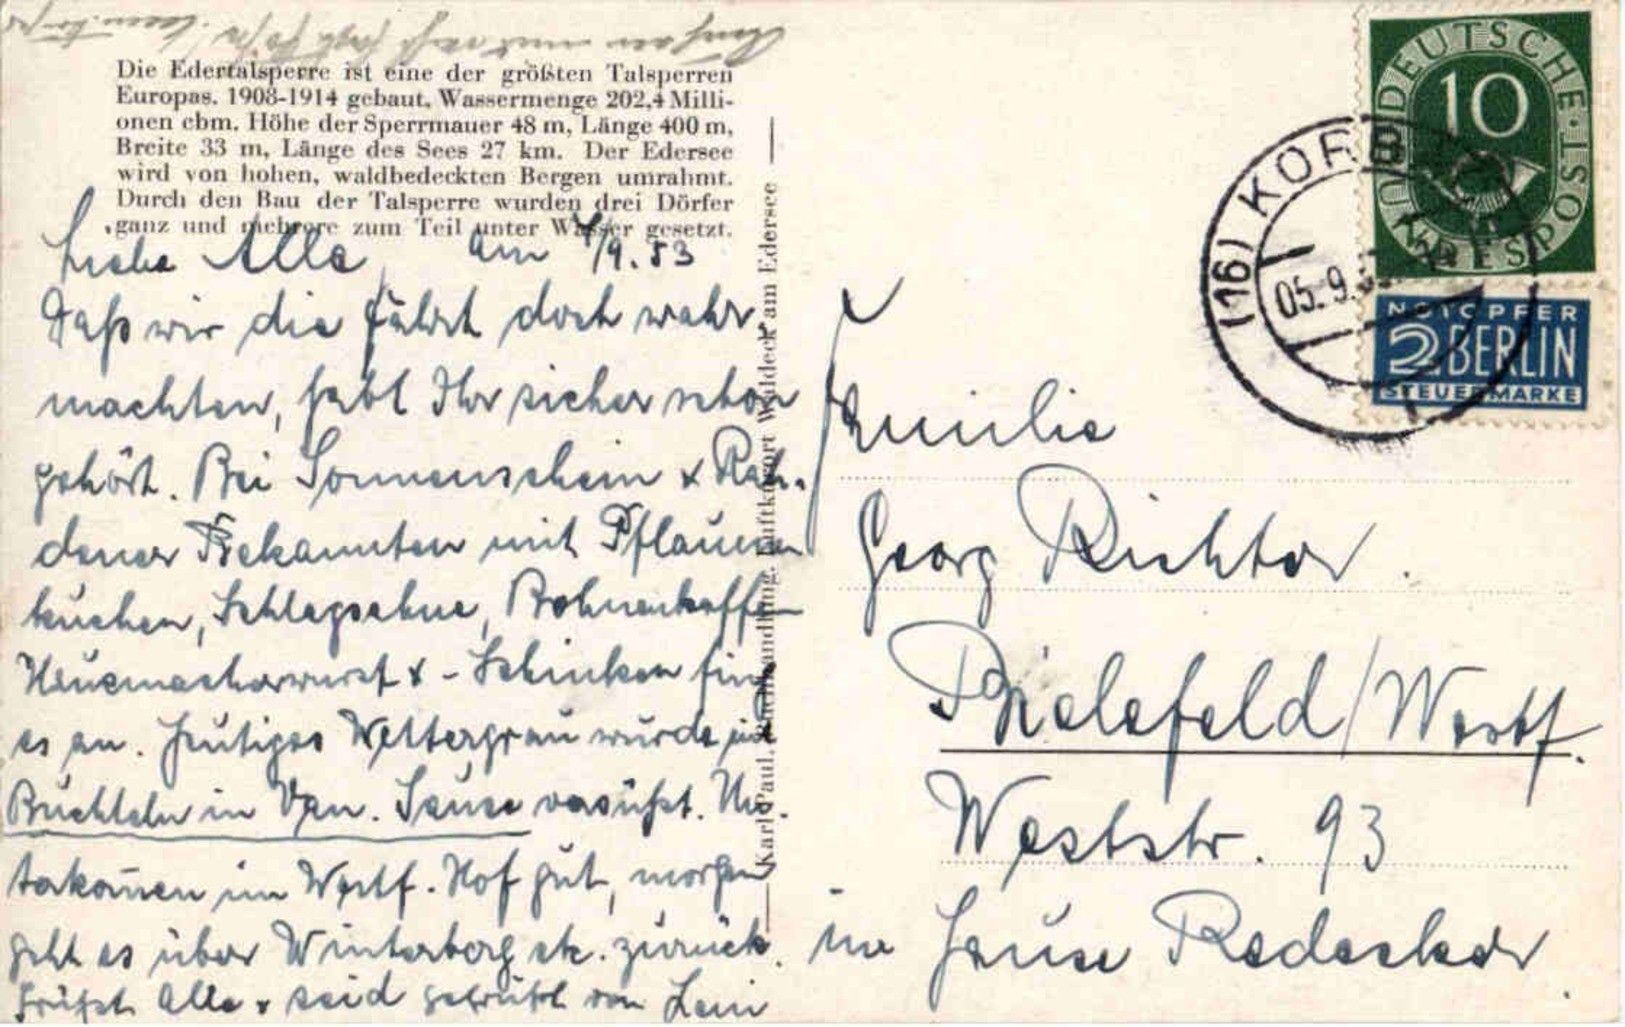 Die Edertalsperre ist eine der größten Talsperren
Europas. 1908-1914 gebaut. Wassermenge 202,4 Milli-
onen cbm. Höhe der Sperrmauer 48 m, Länge 400 m,
Breite 33 m, Länge des Sees 27 km. Der Edersee
wird von hohen, waldbedeckten Bergen umrahmt.
Durch den Bau der Talsperre wurden drei Dörfer
ganz und mehrere zum Teil unter Wasser gesetzt.
Liebe Alle, am 4/9.53
Daß wir die Fahrt doch wahr
machten, habt Ihr sicher schon
gehört. Bei Sonnenschein &
dener Bekannten mit Pflaumen
kuchen, Schlagsahne, Bohnenkaffee
Hausmacherwurst & - Schinken fing
es an. Heutiges Wettergrau wurde mit
Buchteln in Van. Sauce versüßt. Un-
terkommen im Westf. Hof gut, morgen
geht es über Winterberg etc. zurück.
Grüßt Alle & seid gegrüßt von
Karl Paul, Buchhandlung, Luftkurort Waldeck am Edersee
DEUTSCHE BUNDESPOST
10
NOTOPFER
2 BERLIN
STEUERMARKE
(16) KORBACH
05.9.
Familie
Georg Richter.
Bielefeld/Westf.
Weststr. 93
im Hause Redecker